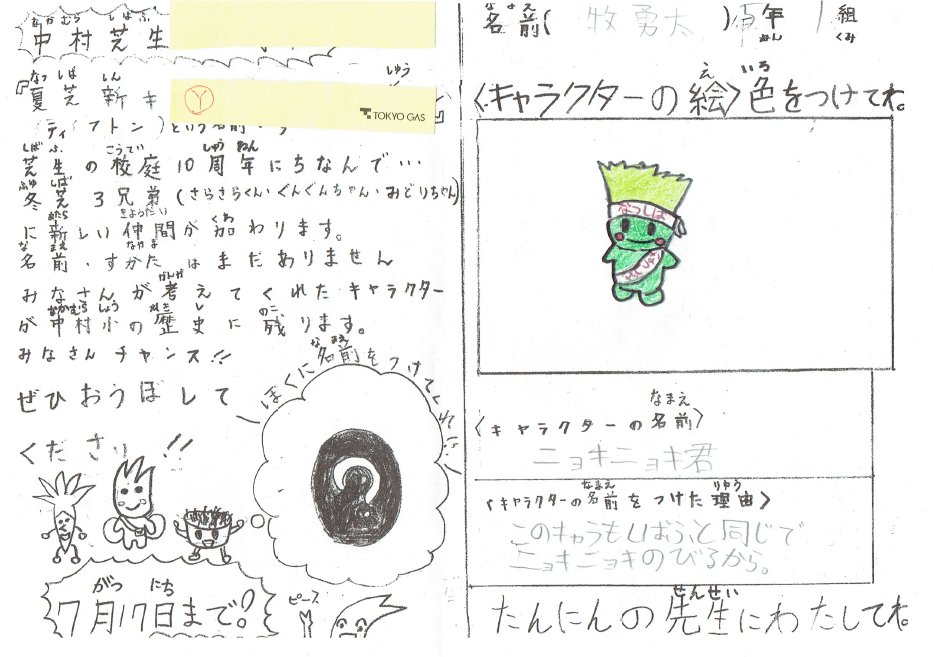 中村芝生
『夏芝 新キ
Y
TOKYO GAS
(ティフトン)という名前
芝生の校庭10周年にちなんで…
冬芝3兄弟(さらさらくん・ぐんぐんちゃん・みどりちゃん)
に新しい仲間が加わります。
名前・すがたはまだありません
みなさんが考えてくれたキャラクター
が中村小の歴史に残ります。
みなさんチャンス!!
ぜひおうぼして
ください!!
ぼくに名前をつけてくれ
7月17日まで!
ピース
名前(牧勇太)
年1組
<キャラクターの絵>色をつけてね。
なつしば
<キャラクターの名前>
ニョキニョキ君
<キャラクターの名前をつけた理由>
このキャラもしばふと同じで
ニョキニョキのびるから。
たんにんの先生にわたしてね。